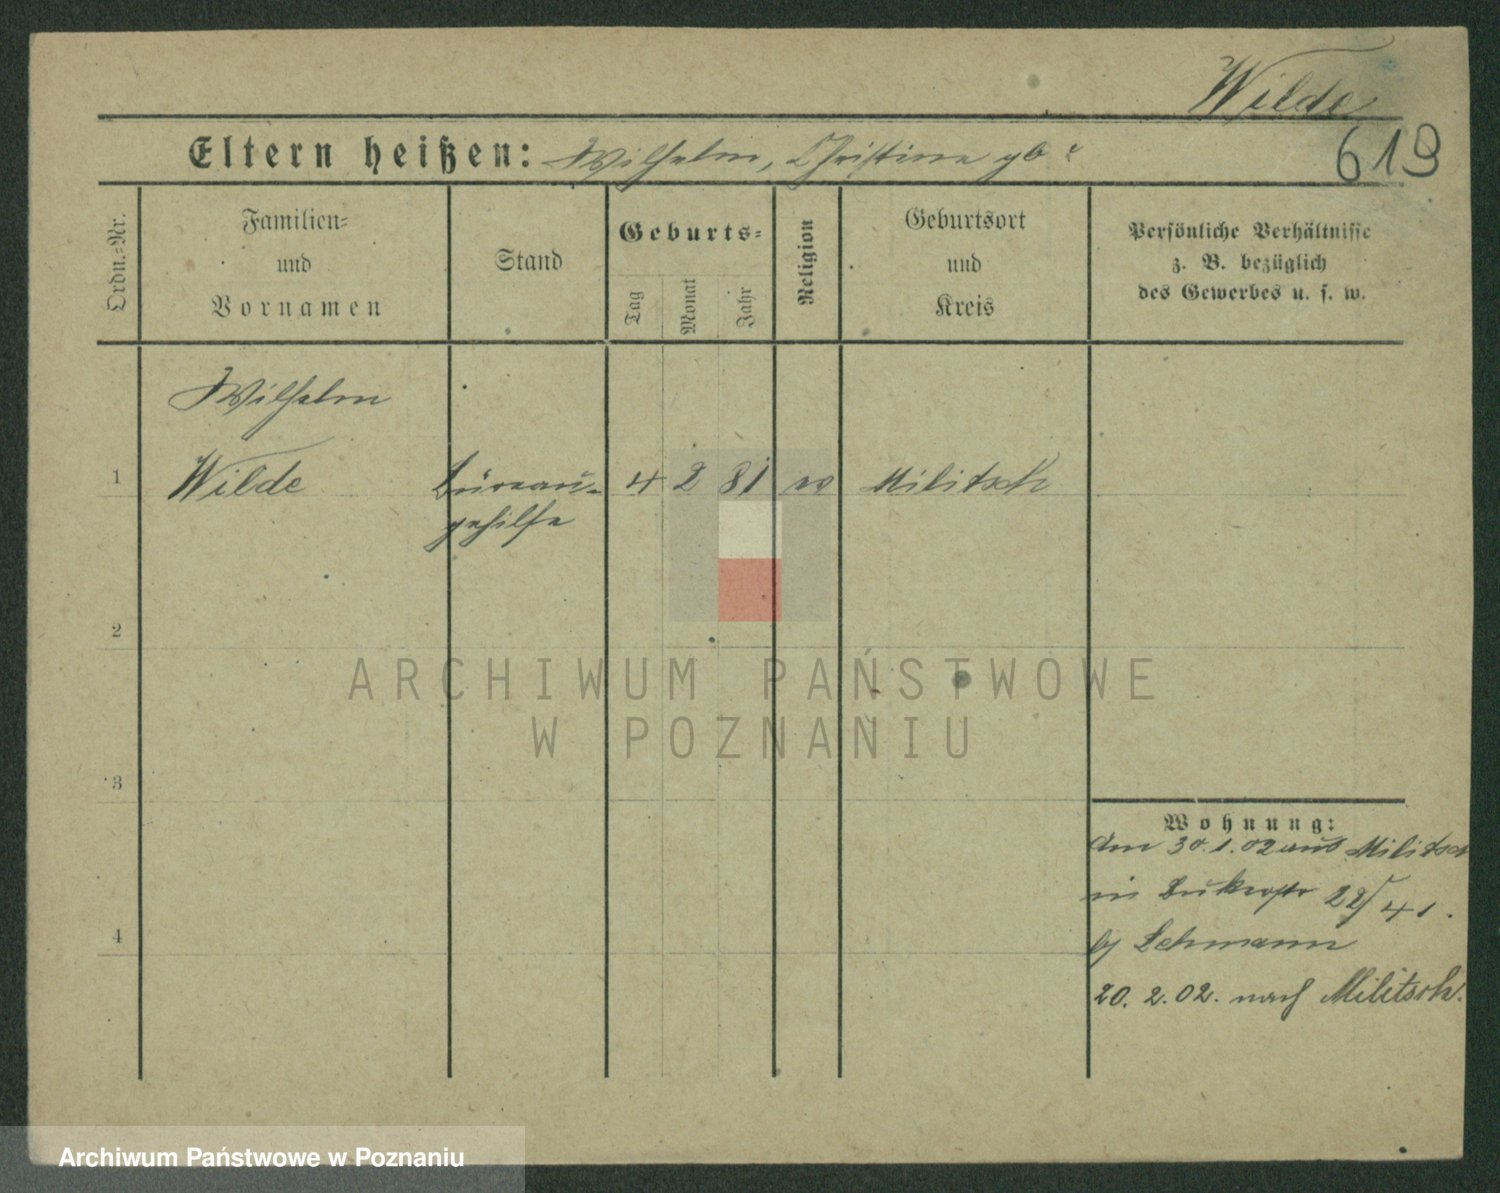 Wilde
619
Eltern heißen: Wilhelm, Christine gb ?
Ordn.-Nr.
Familien-
und
Vornamen
Stand
Geburts-
Tag
Monat
Jahr
Religion
Geburtsort
und
Kreis
Persönliche Verhältnisse
z. B. bezüglich
des Gewerbes u. s. w.
Wilhelm
1 Wilde Büreau- 4 2 81 Militsch
gehilfe
2
3
4
Wohnung:
Am 30.1.02 aus Militsch
in 22/41.
bj Lehmann
20. 2. 02. nach Militsch.
ARCHIWUM PAŃSTWOWE
W POZNANIU
Archiwum Państwowe w Poznaniu